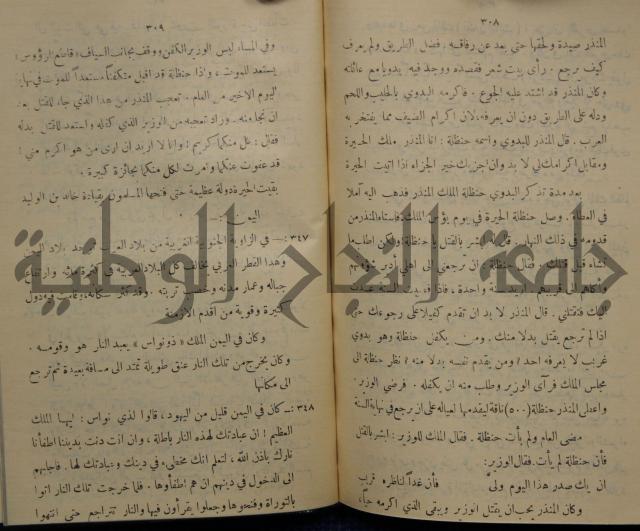 ٣٠٨
المنذر صيدة ولحقها حتى بعد عن رفاقه. فضل الطريق ولم يعرف
كيف يرجع. رأى بيت شعر فقصده ووجد فيه بدويا مع عائلته
وكان المنذر قد اشتد عليه الجوع. فاكرمه البدوي بالحليب واللحم
ودله على الطريق دون ان يعرفه، لان اكرام الضيف مما يفتخر به
العرب. قال المنذر للبدوي واسمه حنظلة: انا المنذر ملك الحيرة
ومقابل اكرامك لي لا بد وان اجزيك خير الجزاء اذا اتيت الحيرة
بعد مدة تذكر البدوي حنظلة الملك المنذر فذهب اليه آملا
في العطاء. وصل حنظلة الحيرة في يوم بؤس الملك، فاستاء المنذر من
قدومه في ذلك النهار. قال له ابشر بالقتل يا حنظلة، ولكن اطلب ما
تشاء قبل قتلك. فقال حنظلة: ان ترجعني الى اهلي
سنة واحدة، فاذا السنة عدت
اليك فتقتلني. قال المنذر لا بد ان تقدم كفيلا على رجوعك حتى
اذا لم ترجع يقتل بدلا منك. ومن يكفل حنظلة وهو بدوي
غريب لا يعرفه احد؟ ومن يقدم نفسه بدلا منه؟ نظر حنظلة الى
مجلس الملك فرأى الوزير وطلب منه ان يكفله. فرضي الوزير.
واعطى المنذر حنظلة (٥٠٠) ناقة ليقدمها لعياله على ان يرجع في نهاية السنة
مضى العام ولم يأت حنظلة. فقال الملك للوزير: ابشر بالقتل
فأن حنظلة لم يأت. فقال الوزير:
ان يك صدر هذا اليوم ولى فأن غداً لناظره قريب
وكان المنذر يحب ان يقتل الوزير ويبقى الذي اكرمه حياً،
٣٠٩
وفي المساء لبس الوزير الكفن ووقف بجانب السياف «قاطع الرؤوس»
يستعد للموت، واذا حنظلة قد اقبل متكفناً مستعداً للموت في نهاية
اليوم الاخير من العام. تعجب المنذر من هذا الذي جاء للقتل بعد
ان نجا منه. وزاد تعجبه من الوزير الذي كفله واستعد للقتل بدله
فقال: كل منكما كريم! وانا لا اريد ان ارى من هو اكرم مني:
قد عفوت عنكما وامرت لكل منكما بجائزة كبيرة.
بقيت الحيرة دولة عظيمة حتى فتحها المسلمون بقيادة خالد بن الوليد
اليمن
٣٤٧ :— في الزاوية الجنوبية الغربية من بلاد العرب توجد بلاد اليمن
وهذا القطر العربي يخالف كل البلاد العربية في كثرة وارتفاع
جباله وعمار مدنه وخصب تربته. وقد كثر سكانه، وقامت فيه دول
كبيرة وقوية من اقدم الازمنة
وكان في اليمن الملك «ذو نواس» يعبد النار هو وقومه.
وكان يخرج من تلك النار عنق طويلة تمتد الى مسافة بعيدة ثم ترجع
الى مكانها
٣٤٨ :— كان في اليمن قليل من اليهود، قالوا لذي نواس: ايها الملك
العظيم! ان عبادتك لهذه النار باطلة، وان انت دنت بديننا اطفأنا
نارك باذن الله، لتعلم انك مخطىء في دينك وعبادتك لها. فاجابهم
الى الدخول في دينهم ان هم اطفأوها. فلما خرجت تلك النار اتوا
بالتوراة وفتحوها وجعلوا يقرأون فيها والنار تتراجع حتى انتهوا
جامعة النجاح الوطنية